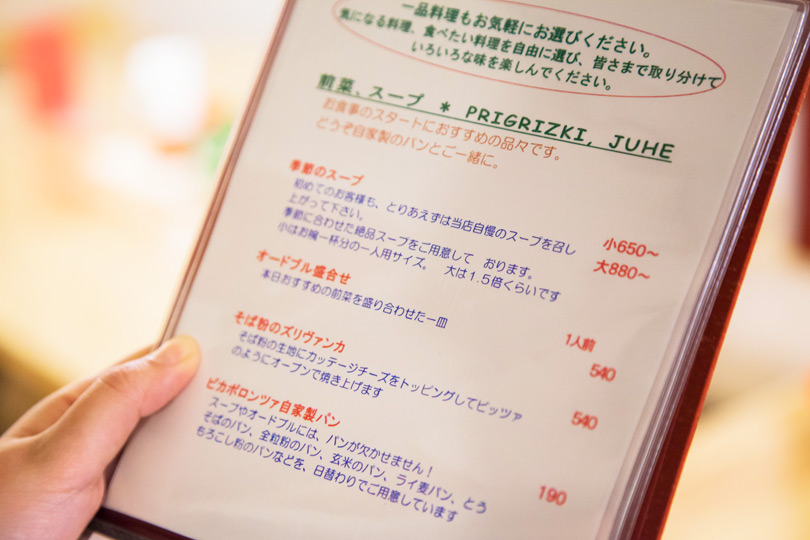 一品料理もお気軽にお選びください。
気になる料理、食べたい料理を自由に選び、皆さまで取り分けて
いろいろな味を楽しんでください。
前菜、スープ ＊ PRIGRIZKI, JUHE
お食事のスタートにおすすめの品々です。
どうぞ自家製のパンとご一緒に。
季節のスープ
初めてのお客様も、とりあえずは当店自慢のスープを召し
上がって下さい。
季節に合わせた絶品スープをご用意して おります。
小はお椀一杯分の一人用サイズ。 大は1.5倍くらいです
小650～
大880～
オードブル盛合せ
本日おすすめの前菜を盛り合わせた一皿
1人前
540
そば粉のズリヴァンカ
そば粉の生地にカッテージチーズをトッピングしてピッツァ
のようにオーブンで焼き上げます
540
ピカポロンツァ自家製パン
スープやオードブルには、パンが欠かせません！
そばのパン、全粒粉のパン、玄米のパン、ライ麦パン、とう
もろこし粉のパンなどを、日替わりでご用意しています
190